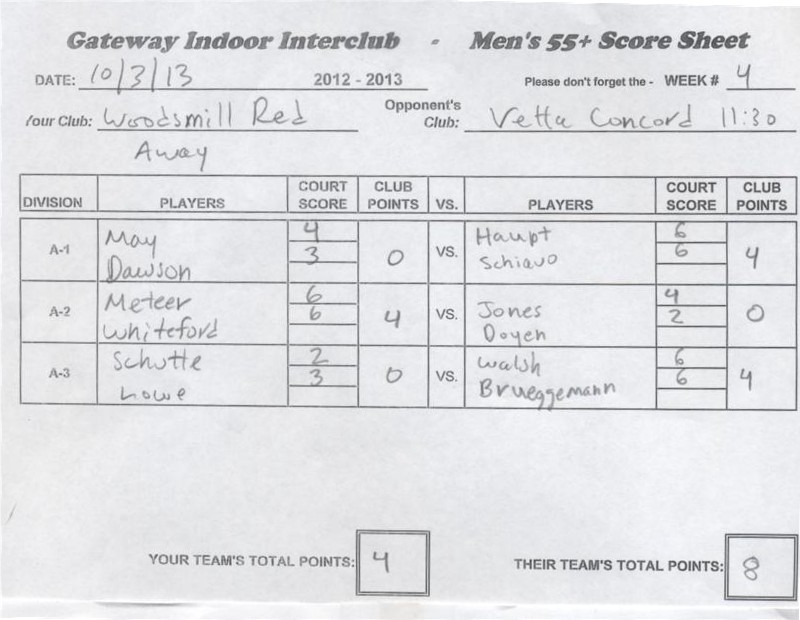 Gateway Indoor Interclub - Men's 55+ Score Sheet
DATE: 10/3/13 2012 - 2013 Please don't forget the - WEEK # 4
Your Club: Woodsmill Red Opponent's Club: Vetta Concord 11:30
Away
DIVISION PLAYERS COURT SCORE CLUB POINTS VS. PLAYERS COURT SCORE CLUB POINTS
A-1 May 4 0 VS. Haupt 6 4
Dawson 3 Schiavo 6
A-2 Meteer 6 4 VS. Jones 4 0
Whiteford 6 Doyen 2
A-3 Schutte 2 0 VS. Walsh 6 4
Lowe 3 Brueggemann 6
YOUR TEAM'S TOTAL POINTS: 4 THEIR TEAM'S TOTAL POINTS: 8